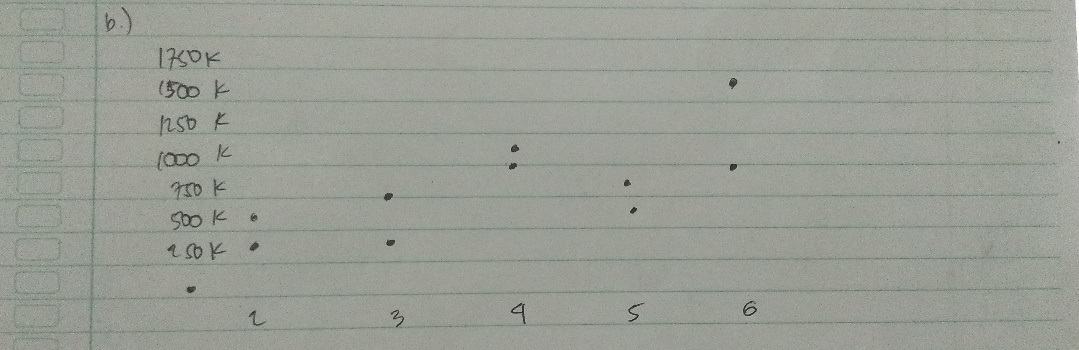 b.)
1750 K
1500 K
1250 K
1000 K
750 K
500 K
250 K
2 3 4 5 6